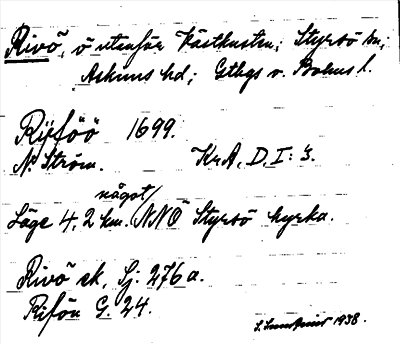 Rivö, ö utanför Västkusten; Styrsö sn;
Askims hd; Gtbgs o. Bohus l.
Riiföö 1699.
N. Ström. KrA, D, I: 3.
något/
Läge 4,2 km. NNÖ Styrsö kyrka.
Rivö ek, Sj. 276 a.
Rifön G. 24.
1938.